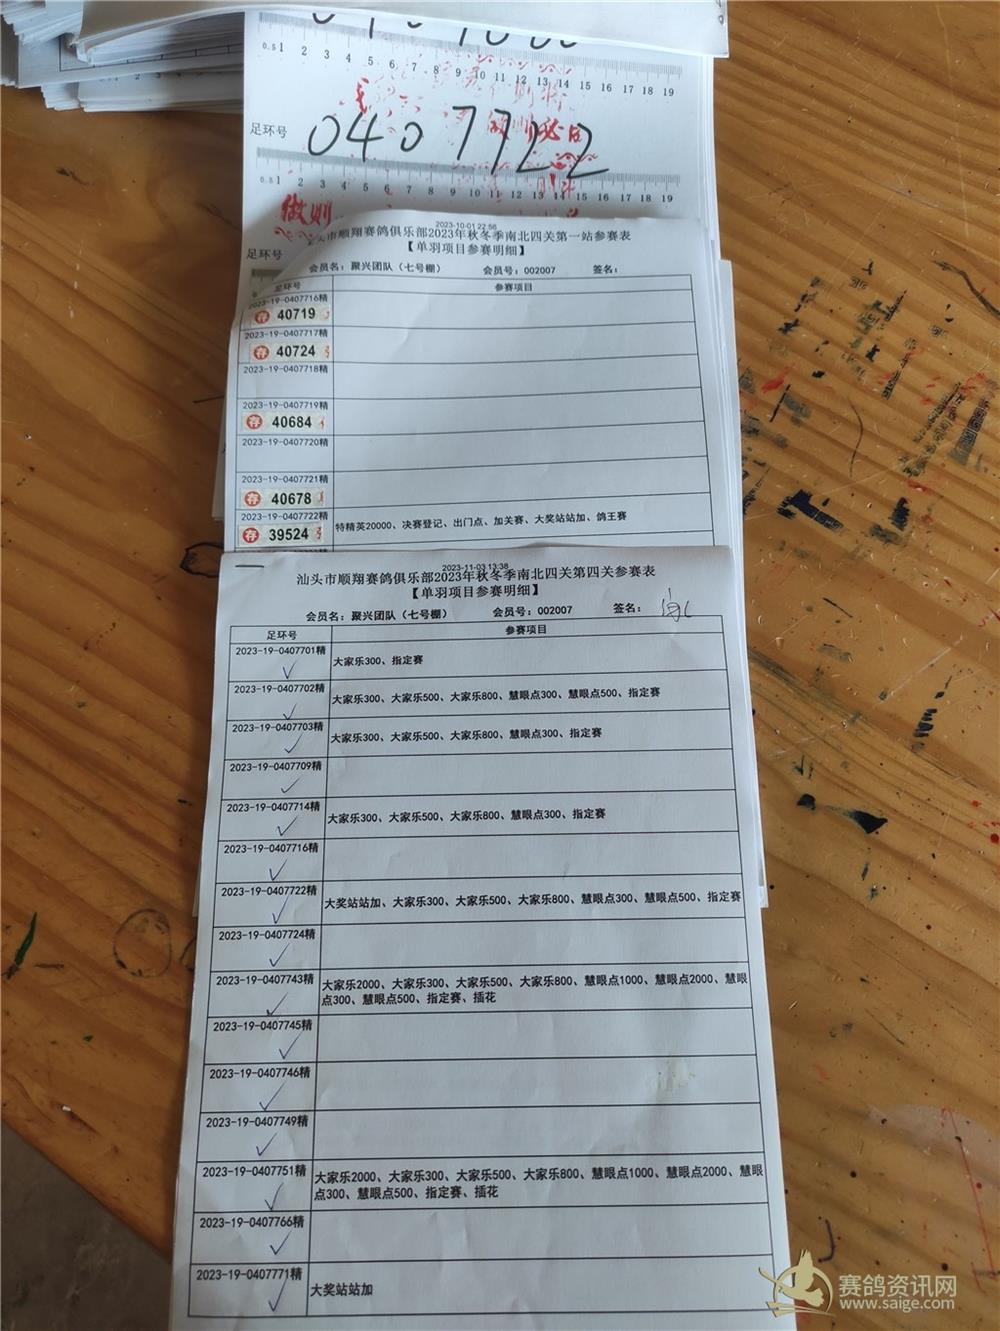 0.5 1 2 3 4 5 6 7 8 9 10 11 12 13 14 15 16 17 18 19
足环号 0407722
0.5 1 2 3 4 5 6 7 8 9 10 11 12 13 14 15 16 17 18 19
做则
足环号
2023-10-01 22:56
汕头市顺翔赛鸽俱乐部2023年秋冬季南北四关第一站参赛表
【单羽项目参赛明细】
会员名：聚兴团队（七号棚） 会员号：002007 签名：
足环号 参赛项目
2023-19-0407716精
存 40719
2023-19-0407717精
存 40724
2023-19-0407718精
2023-19-0407719精
存 40684
2023-19-0407720精
2023-19-0407721精
存 40678
2023-19-0407722精
存 39524 特精英20000、决赛登记、出门点、加关赛、大奖站站加、鸽王赛
2023-11-03 13:38
汕头市顺翔赛鸽俱乐部2023年秋冬季南北四关第四关参赛表
【单羽项目参赛明细】
会员名：聚兴团队（七号棚） 会员号：002007 签名：
足环号 参赛项目
2023-19-0407701精 大家乐300、指定赛
2023-19-0407702精 大家乐300、大家乐500、大家乐800、慧眼点300、慧眼点500、指定赛
2023-19-0407703精 大家乐300、大家乐500、大家乐800、慧眼点300、指定赛
2023-19-0407709精
2023-19-0407714精 大家乐300、大家乐500、大家乐800、慧眼点300、指定赛
2023-19-0407716精
2023-19-0407722精 大奖站站加、大家乐300、大家乐500、大家乐800、慧眼点300、慧眼点500、指定赛
2023-19-0407724精
2023-19-0407743精 大家乐2000、大家乐300、大家乐500、大家乐800、慧眼点1000、慧眼点2000、慧眼
点300、慧眼点500、指定赛、插花
2023-19-0407745精
2023-19-0407746精
2023-19-0407749精
2023-19-0407751精 大家乐2000、大家乐300、大家乐500、大家乐800、慧眼点1000、慧眼点2000、慧眼
点300、慧眼点500、指定赛、插花
2023-19-0407766精
2023-19-0407771精 大奖站站加
赛鸽资讯网
www.saige.com